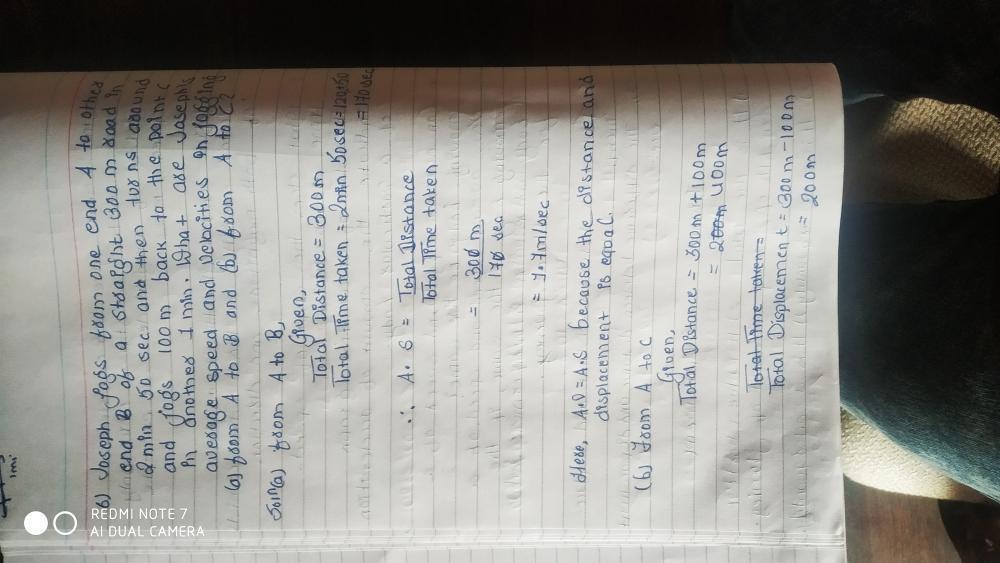 6) Joseph jogs from one end A to other
end B of a straight 300 m road in
2 min 50 sec and then turns around
and jogs 100 m back to the point C
in another 1 min. What are Joseph's
average speed and velocities in jogging
(a) from A to B and (b) from A to C?
Soln(a) from A to B,
Given,
Total Distance = 300m
Total Time taken = 2min 50sec = 120+50
= 170 sec
∴ A.S = Total Distance
Total Time taken
= 300 m
170 sec
= 1.7m/sec
Here, A.V = A.S because the distance and
displacement is equal.
(b) From A to C
Given,
Total Distance = 300m + 100m
= 200m 400m
Total Time taken =
Total Displacement = 300m - 100m
= 200m
REDMI NOTE 7
AI DUAL CAMERA